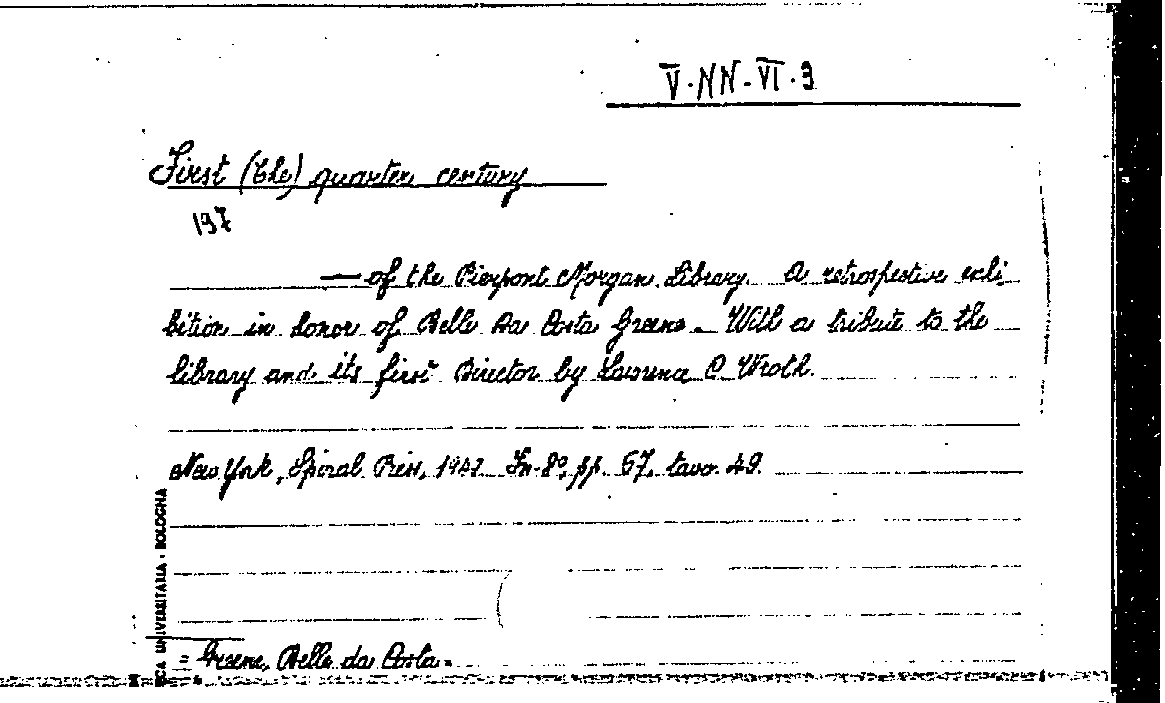 V·NN-VI·3
First (the) quarter century
197
— of the Pierpont Morgan Library. A retrospective exhi
bition in honor of Belle da Costa Greene. With a tribute to the
library and its first Director by Lawrence C Wroth.
New York, Spiral Press, 1949. In-8°, pp. 67, tavv. 49.
CA UNIVERSITARIA - BOLOGNA
= Greene, Belle da Costa =